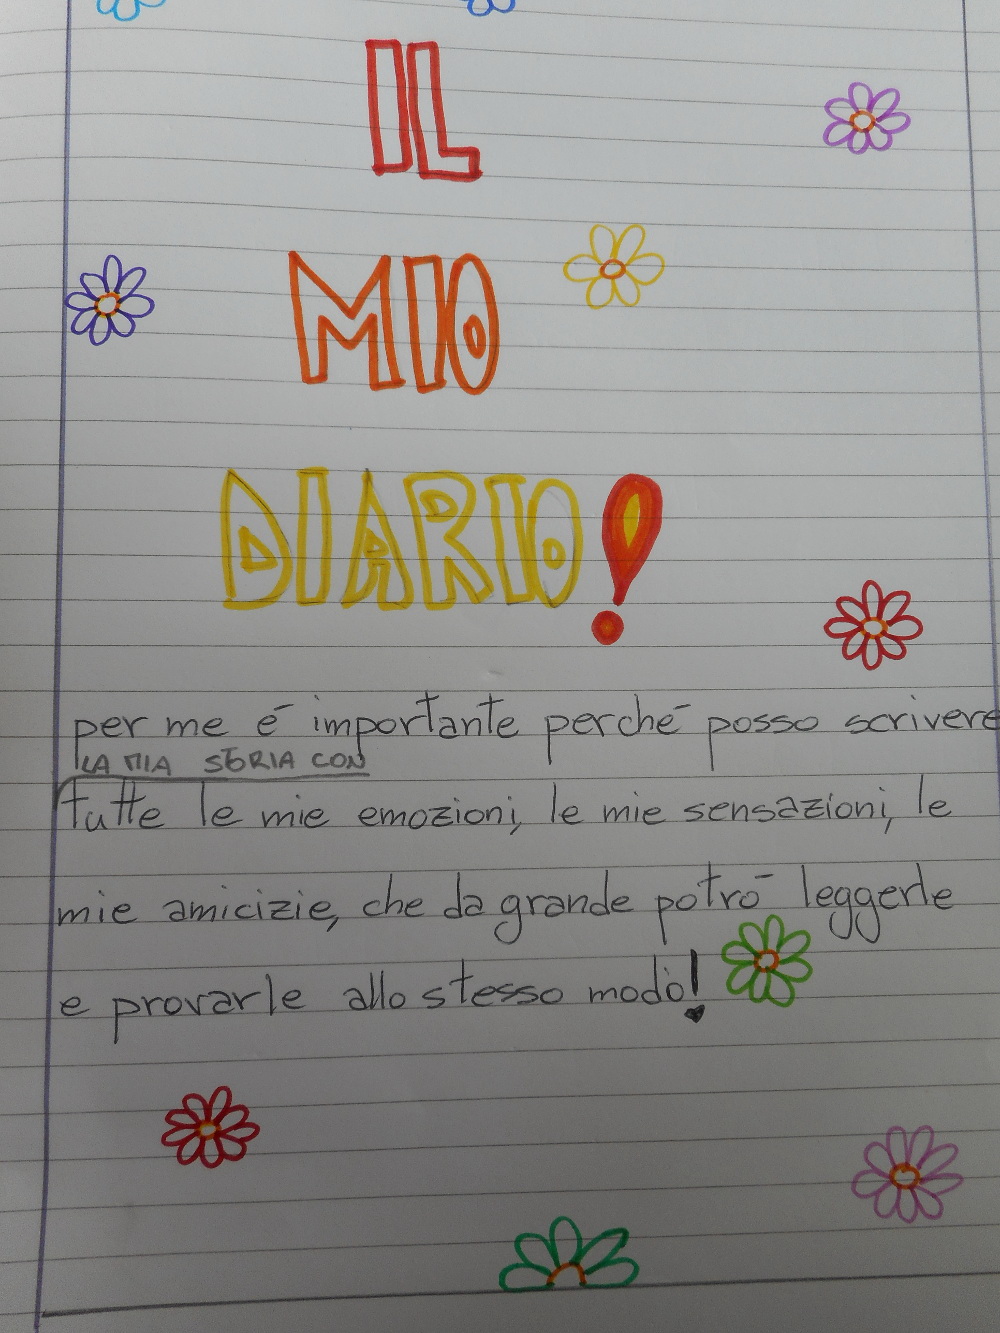 IL
MIO
DIARIO!
per me é importante perché posso scrivere
LA MIA STORIA CON
tutte le mie emozioni, le mie sensazioni, le
mie amicizie, che da grande potrò leggerle
e provarle allo stesso modo!